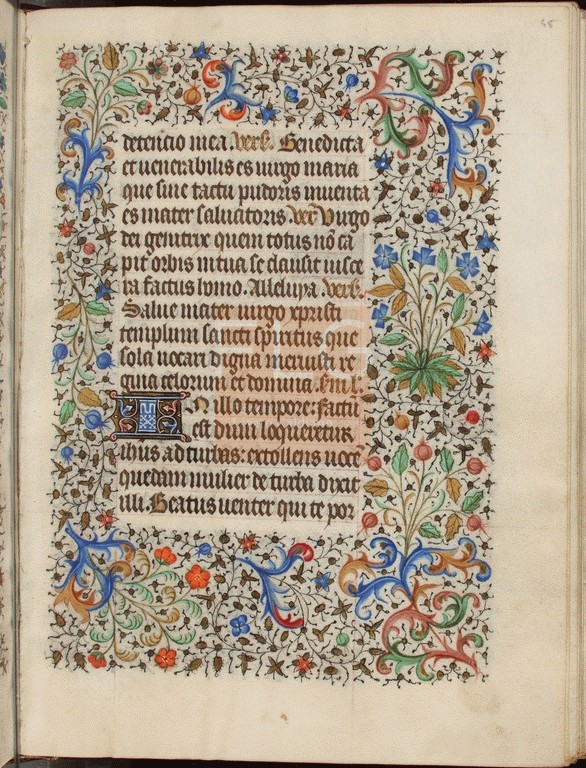 65
detencio mea. vers. Benedicta
et uenerabilis es uirgo maria
que sine tactu pudoris inuenta
es mater saluatoris. vers Uirgo
dei genitrix quem totus nō ca
pit orbis in tua se clausit uisce
ra factus homo. Alleluya. vers.
Salue mater uirgo xpristi
templum sancti spiritus que
sola uocari digna meruisti re
gina celorum et domina. Em l.
In illo tempore: factū
est dum loqueretur
ihus ad turbas: extollens uocē
quedam mulier de turba dixit
illi. Beatus uenter qui te por